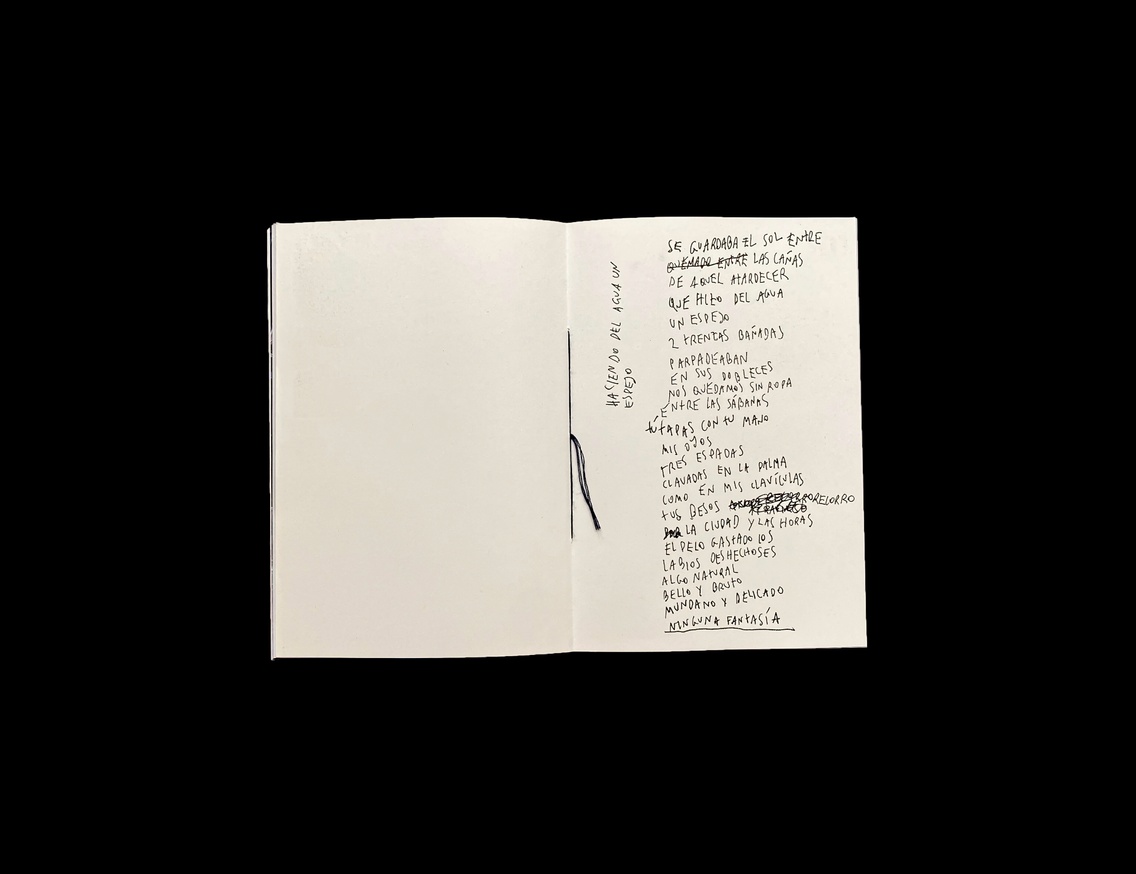 HACIENDO DEL AGUA UN
ESPEJO
SE GUARDABA EL SOL ENTRE
QUEMADO ENTRE LAS CAÑAS
DE AQUEL ATARDECER
QUE HIZO DEL AGUA
UN ESPEJO
2 TRENZAS BAÑADAS
PARPADEABAN
EN SUS DOBLECES
NOS QUEDAMOS SIN ROPA
ENTRE LAS SÁBANAS
TÚ TAPAS CON TU MANO
MIS OJOS
TRES ESPADAS
CLAVADAS EN LA PALMA
COMO EN MIS CLAVÍCULAS
TUS BESOS
LA CIUDAD Y LAS HORAS
EL PELO GASTADO LOS
LABIOS DESHECHOSES
ALGO NATURAL
BELLO Y BRUTO
MUNDANO Y DELICADO
NINGUNA FANTASÍA